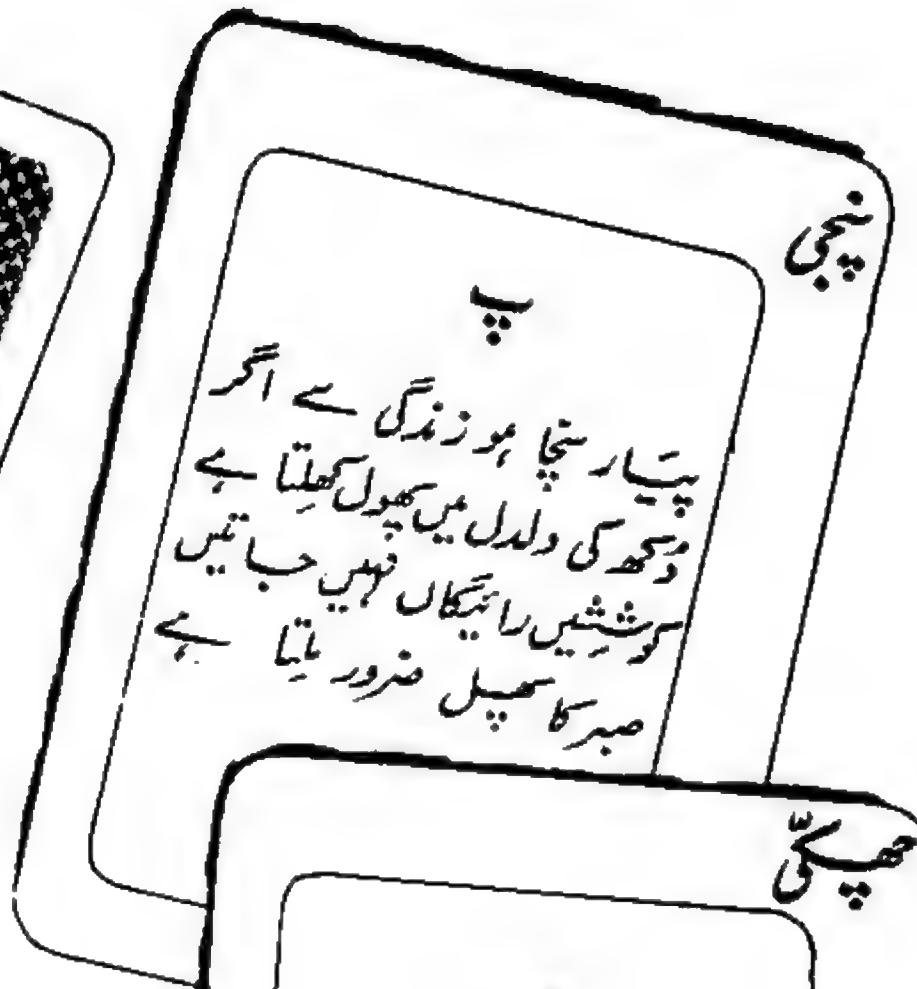 پنجی
پ
پیار سچا ہو زندگی سے اگر
دُکھ کی دلدل میں پھول کھِلتا ہے
کوششیں رائیگاں نہیں جاتیں
صبر کا پھل ضرور مِلتا ہے
چھکّی